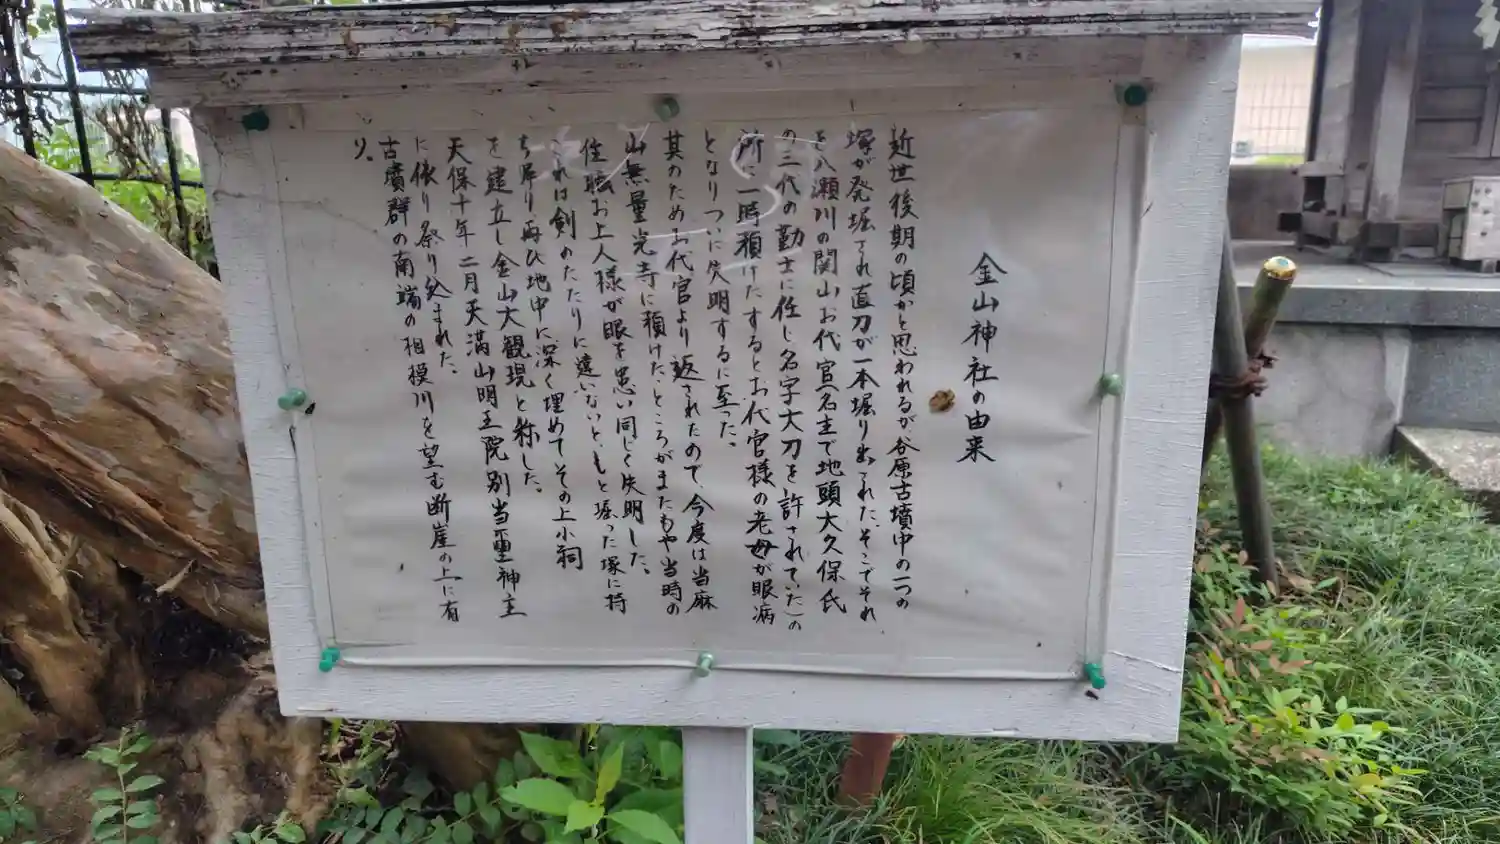 金山神社の由来
近世後期の頃かと思われるが谷原古墳中の一つの
塚が発堀され直刀が一本堀り出された、そこでそれ
を八瀬川の関山お代官(名主で地頭大久保氏
の三代の勤士に任じ名字大刀を許されていた)の
所に一時預けたするとお代官様の老母が眼病
となりついに失明するに至った。
其のためお代官より返されたので、今度は当麻
山無量光寺に預けた、ところがまたもや当時の
住職お上人様が眼を患い同じく失明した。
これは剣のたたりに違いないと、もと堀った塚に持
ち帰り再び地中に深く埋めてその上小祠
を建立し金山大観現と称した。
天保十年二月天満山明王院別当璽神主
に依り祭り込まれた。
古墳群の南端の相模川を望む断崖の上に有
り。